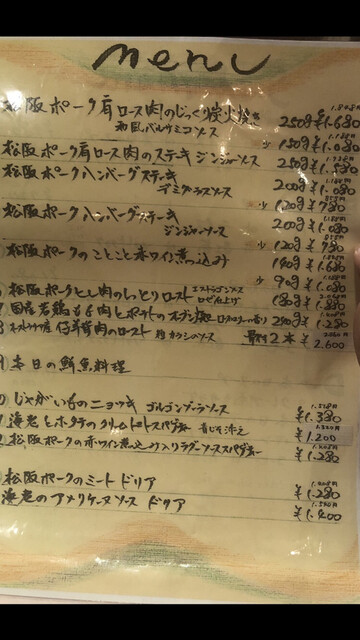 menu
松阪ポーク肩ロース肉のじっくり炭火焼 250g ¥1.680
和風バルサミコソース 少 150g ¥1.080
松阪ポーク肩ロース肉のステーキ ジンジャーソース 250g
松阪ポークハンバーグステーキ 200g ¥1.080
デミグラスソース 少 120g ¥780
松阪ポークハンバーグステーキ 200g ¥1.080
ジンジャーソース 少 120g ¥780
松阪ポークのことこと赤ワイン煮込み 140g ¥1.680
少 90g ¥1.080
松阪ポークヒレ肉のしっとりロースト エストラゴンソース ロゼ仕上げ 180g
国産若鶏もも肉とポテトのオーブン焼 ローズマリーの香り ¥1.280
仔羊背肉のロースト 粒カラシのソース 骨付2本 ¥2.600
本日の鮮魚料理
じゃがいものニョッキ ゴルゴンゾーラソース ¥1.380
海老とホタテのクリームトマトスパゲティー 青じそ添え ¥1.200
松阪ポークの赤ワイン煮込み入りラグーソーススパゲティー ¥1.280
松阪ポークのミートドリア ¥1.280
海老のアメリケーヌソース ドリア ¥1.400